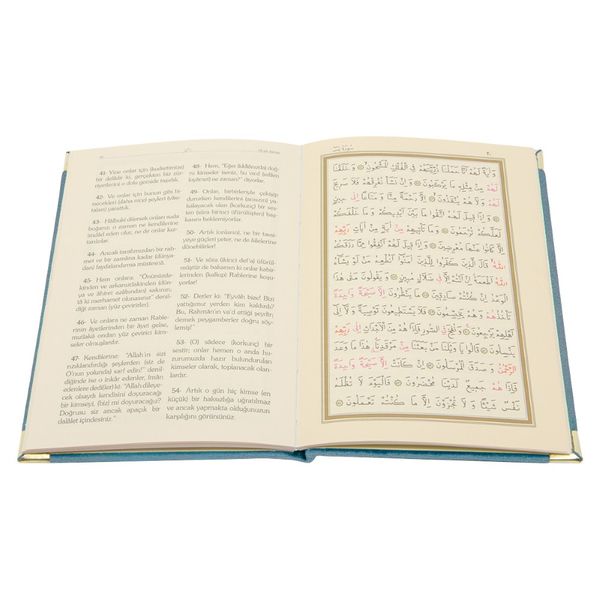 41- Yine onlar için (kudretimize)
bir delildir ki, gerçekten biz zür-
riyetlerini o dolu gemide taşıdık.
42- Ve bunun gibi on-
lara, binecekleri (daha nice) şeyleri
yarattık.
43- Hâlbuki dilersek onları suda
boğarız; o zaman ne kendilerine
imdâd eden olur, ne de onlar kur-
tarılırlar.
44- Ancak tarafımızdan bir rah-
met ve bir zamâna kadar (dünya-
dan) faydalandırma müstesnâ.
45- Hem onlara: "Önünüzde-
kinden ve arkanızdakinden (dün-
ya ve âhiret azâbından) sakının;
tâ ki merhamet olunasınız" denil-
diği zaman (yüz çevirirler).
46- Ve onlara ne zaman Rable-
rinin âyetlerinden bir âyet gelse,
mutlakā ondan yüz çevirici kim-
seler olmuşlardır.
47- Kendilerine: "Allah'ın sizi
rızıklandırdığı şeylerden (siz de
O'nun yolunda) sarf edin!" denildi-
ğinde ise o inkâr edenler, îmân
edenlere dediler ki: "Allah dileye-
cek olsaydı kendisini doyuracağı
bir kimseyi, (biz) mi doyuracağız?
Doğrusu siz ancak apaçık bir
dalâlet içindesiniz."
48- Hem, "Eğer (iddiânızda) doğ-
ru kimseler iseniz, bu vaad (edilen
kıyâmet) ne zaman?" diyorlar.
49- Onlar, birbirleriyle çekişip
dururlarken (kendilerini) ansızın ya-
kalayacak olan (korkunç) bir ses-
ten (sûra birinci üfürülüşten) baş-
kasını beklemiyorlar.
50- Artık (onlar) ne bir tavsi-
yeye güçleri yeter, ne de âilelerine
dönebilirler!
51- Ve sûra (ikinci def'a) üfürül-
müştür de bakarsın ki onlar kabir-
lerinden (kalkıp) Rablerine koşu-
yorlar.
52- Derler ki: "Eyvâh bize! Bizi
yattığımız yerden kim kaldırdı?
Bu, Rahmân'ın va'd ettiği şeydir;
demek peygamberler doğru söyle-
miş!"
53- (O) sâdece (korkunç) bir
sestir; onlar hemen o anda hu-
zûrumuzda hazır bulundurulan
kimseler olarak, toplanacak olan-
lardır.
54- Artık o gün hiç kimse (en
küçük) bir haksızlığa uğratılmaz
ve ancak yapmakta olduğunuzun
karşılığını görürsünüz.
وَاٰيَةٌ لَهُمْ اَنَّا حَمَلْنَا ذُرِّيَّتَهُمْ فِى الْفُلْكِ الْمَشْحُونِ ۝ وَخَلَقْنَا
لَهُمْ مِنْ مِثْلِهِ مَا يَرْكَبُونَ ۝ وَاِنْ نَشَأْ نُغْرِقْهُمْ فَلَا صَرِيخَ
لَهُمْ وَلَا هُمْ يُنْقَذُونَ ۝ اِلَّا رَحْمَةً مِنَّا وَمَتَاعًا اِلٰى حِينٍ
۝ وَاِذَا قِيلَ لَهُمُ اتَّقُوا مَا بَيْنَ اَيْدِيكُمْ وَمَا خَلْفَكُمْ
لَعَلَّكُمْ تُرْحَمُونَ ۝ وَمَا تَأْتِيهِمْ مِنْ اٰيَةٍ مِنْ اٰيَاتِ رَبِّهِمْ
اِلَّا كَانُوا عَنْهَا مُعْرِضِينَ ۝ وَاِذَا قِيلَ لَهُمْ اَنْفِقُوا مِمَّا رَزَقَكُمُ
اللّٰهُ قَالَ الَّذِينَ كَفَرُوا لِلَّذِينَ اٰمَنُوا اَنُطْعِمُ مَنْ لَوْ يَشَاءُ
اللّٰهُ اَطْعَمَهُ اِنْ اَنْتُمْ اِلَّا فِى ضَلَالٍ مُبِينٍ ۝ وَيَقُولُونَ مَتٰى هٰذَا
الْوَعْدُ اِنْ كُنْتُمْ صَادِقِينَ ۝ مَا يَنْظُرُونَ اِلَّا صَيْحَةً وَاحِدَةً
تَأْخُذُهُمْ وَهُمْ يَخِصِّمُونَ ۝ فَلَا يَسْتَطِيعُونَ تَوْصِيَةً وَلَا اِلٰى
اَهْلِهِمْ يَرْجِعُونَ ۝ وَنُفِخَ فِى الصُّورِ فَاِذَا هُمْ مِنَ الْاَجْدَاثِ اِلٰى رَبِّهِمْ
يَنْسِلُونَ ۝ قَالُوا يَا وَيْلَنَا مَنْ بَعَثَنَا مِنْ مَرْقَدِنَا هٰذَا مَا وَعَدَ
الرَّحْمٰنُ وَصَدَقَ الْمُرْسَلُونَ ۝ اِنْ كَانَتْ اِلَّا صَيْحَةً وَاحِدَةً
فَاِذَا هُمْ جَمِيعٌ لَدَيْنَا مُحْضَرُونَ ۝ فَالْيَوْمَ لَا تُظْلَمُ
نَفْسٌ شَيْئًا وَلَا تُجْزَوْنَ اِلَّا مَا كُنْتُمْ تَعْمَلُونَ ۝